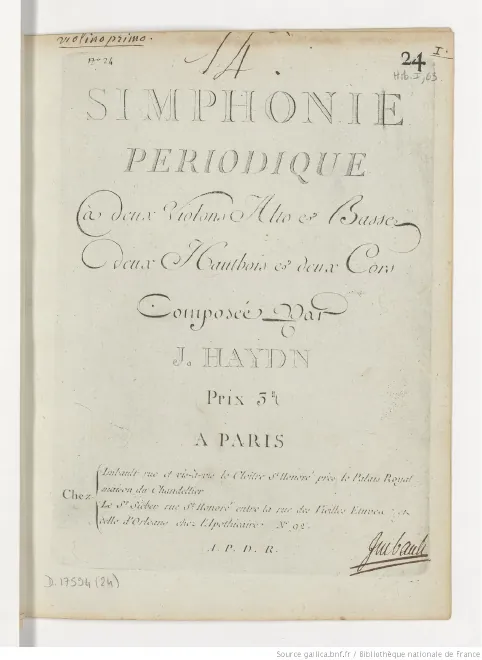 violino primo.
N° 24
14.
24
I.
Hob. I, 63
SIMPHONIE
PERIODIQUE
à deux Violons Alto et Basse
deux Hautbois et deux Cors
Composée Par
J. HAYDN
Prix 3₶
A PARIS
Chez
Imbault rue et vis-à-vis le Cloître St Honoré près le Palais Royal
maison du Chandellier
Le Sr Sieber rue St Honoré entre la rue des Vielles Etuves et
celle d'Orleans chez l'Apothicaire N° 92.
A. P. D. R.
Imbault
D. 17594 (24)
Source gallica.bnf.fr / Bibliothèque nationale de France